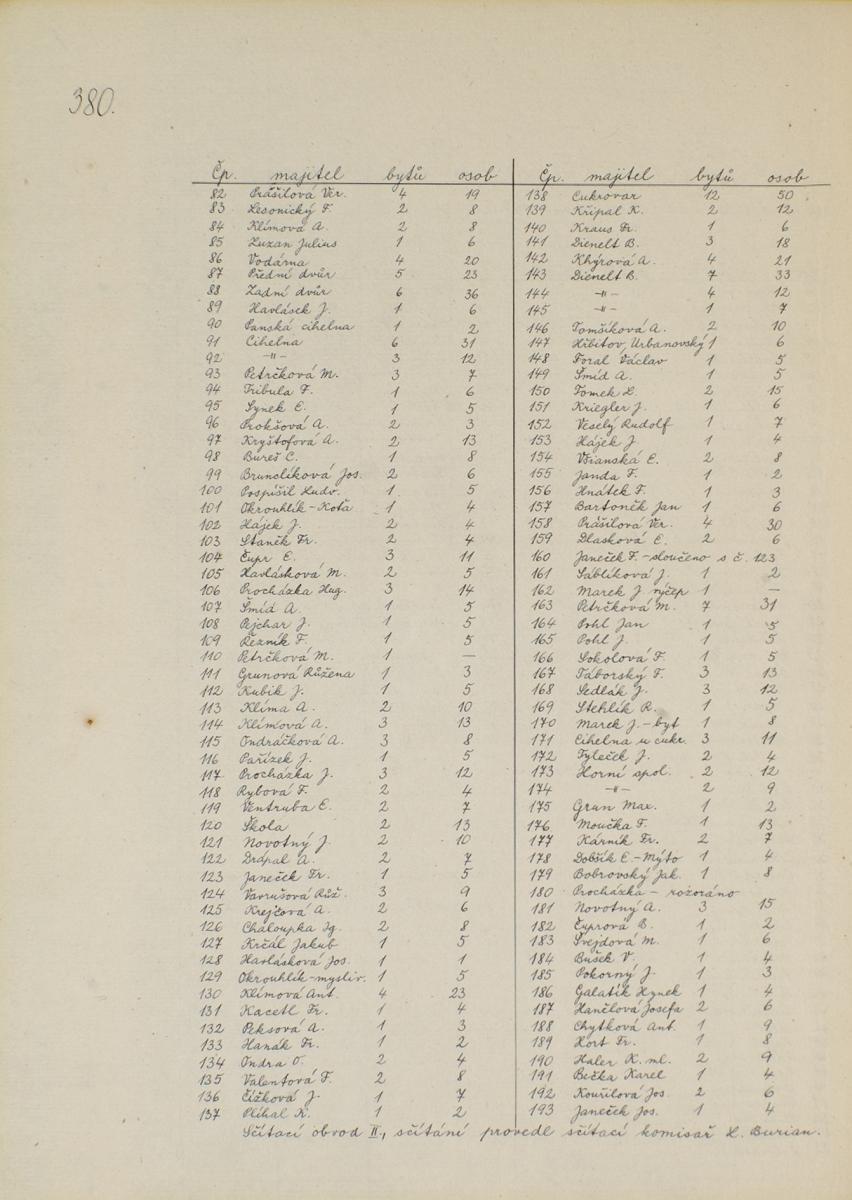 380.
Čp. majitel bytů osob
82 Prášilová Ver. 4 19
83 Lesonický F. 2 8
84 Klímová A. 2 8
85 Luzan Julius 1 6
86 Vodárna 4 20
87 Přední dvůr 5 23
88 Zadní dvůr 6 36
89 Havlásek J. 1 6
90 Panská cihelna 1 2
91 Cihelna 6 31
92 -"- 3 12
93 Petrčková M. 3 7
94 Tribula F. 1 6
95 Synek E. 1 5
96 Prokšová A. 2 3
97 Kryštofová A. 2 13
98 Bureš C. 1 8
99 Brunclíková Jos. 2 6
100 Pospíšil Ludv. 1 5
101 Okrouhlík-Koťa 1 4
102 Hájek J. 2 4
103 Staněk Fr. 2 4
104 Čupr E. 3 11
105 Havlásková M. 2 5
106 Procházka Hug. 3 14
107 Šmíd A. 1 5
108 Pejchar J. 1 5
109 Řezník F. 1 5
110 Petrčková M. 1 —
111 Grunová Růžena 1 3
112 Kubík J. 1 5
113 Klíma A. 2 10
114 Klímová A. 3 13
115 Ondráčková A. 3 8
116 Pařízek J. 1 5
117 Procházka J. 3 12
118 Rybová F. 2 4
119 Ventruba E. 2 7
120 Škola 2 13
121 Novotný J. 2 10
122 Drápal A. 2 7
123 Janeček Fr. 1 5
124 Vavrušová Růž. 3 9
125 Krejčová A. 2 6
126 Chaloupka Ig. 2 8
127 Krčál Jakub 1 5
128 Havlásková Jos. 1 1
129 Okrouhlík-mysliv. 1 5
130 Klímová Ant. 4 23
131 Kacetl Fr. 1 4
132 Peksová A. 1 3
133 Hanák Fr. 1 2
134 Ondra O. 2 4
135 Valentová F. 2 8
136 Čížková J. 1 7
137 Plíhal K. 1 2
Čp. majitel bytů osob
138 Cukrovar 12 50
139 Křípal K. 2 12
140 Kraus Fr. 1 6
141 Dienelt B. 3 18
142 Khýrová A. 4 21
143 Dienelt B. 7 33
144 -"- 4 12
145 -"- 1 7
146 Tomšíková A. 2 10
147 Hřbitov, Urbanovský 1 6
148 Foral Václav 1 5
149 Šmíd A. 1 5
150 Tomek L. 2 15
151 Kriegler J. 1 6
152 Veselý Rudolf 1 7
153 Hájek J. 1 4
154 Všianská E. 2 8
155 Janda F. 1 2
156 Hnátek F. 1 3
157 Bartoněk Jan 1 6
158 Prášilová Ver. 4 30
159 Dlasková E. 2 6
160 Janeček F. - sloučeno s č. 123
161 Sáblíková J. 1 2
162 Marek J. výčep 1 —
163 Petrčková M. 7 31
164 Pohl Jan 1 5
165 Pohl J. 1 5
166 Sokolová F. 1 5
167 Táborský F. 3 13
168 Sedlák J. 3 12
169 Stehlík R. 1 5
170 Marek J.-byt 1 8
171 Cihelna u cukr. 3 11
172 Tyleček J. 2 4
173 Horní spol. 2 12
174 -"- 2 9
175 Grun Max. 1 2
176 Moučka F. 1 13
177 Kárník Fr. 2 7
178 Dobšík E.-Mýto 1 4
179 Bobrovský Jak. 1 8
180 Procházka - rozoráno
181 Novotný A. 3 15
182 Čuprová B. 1 2
183 Švejdová M. 1 6
184 Bušek V. 1 4
185 Pokorný J. 1 3
186 Galatík Hynek 1 4
187 Hančlová Josefa 2 6
188 Chytková Ant. 1 9
189 Hort Fr. 1 8
190 Haler K. ml. 2 9
191 Bečka Karel 1 4
192 Kouřilová Jos. 2 6
193 Janeček Jos. 1 4
Sčítací obvod II., sčítání provedl sčítací komisař L. Burian.